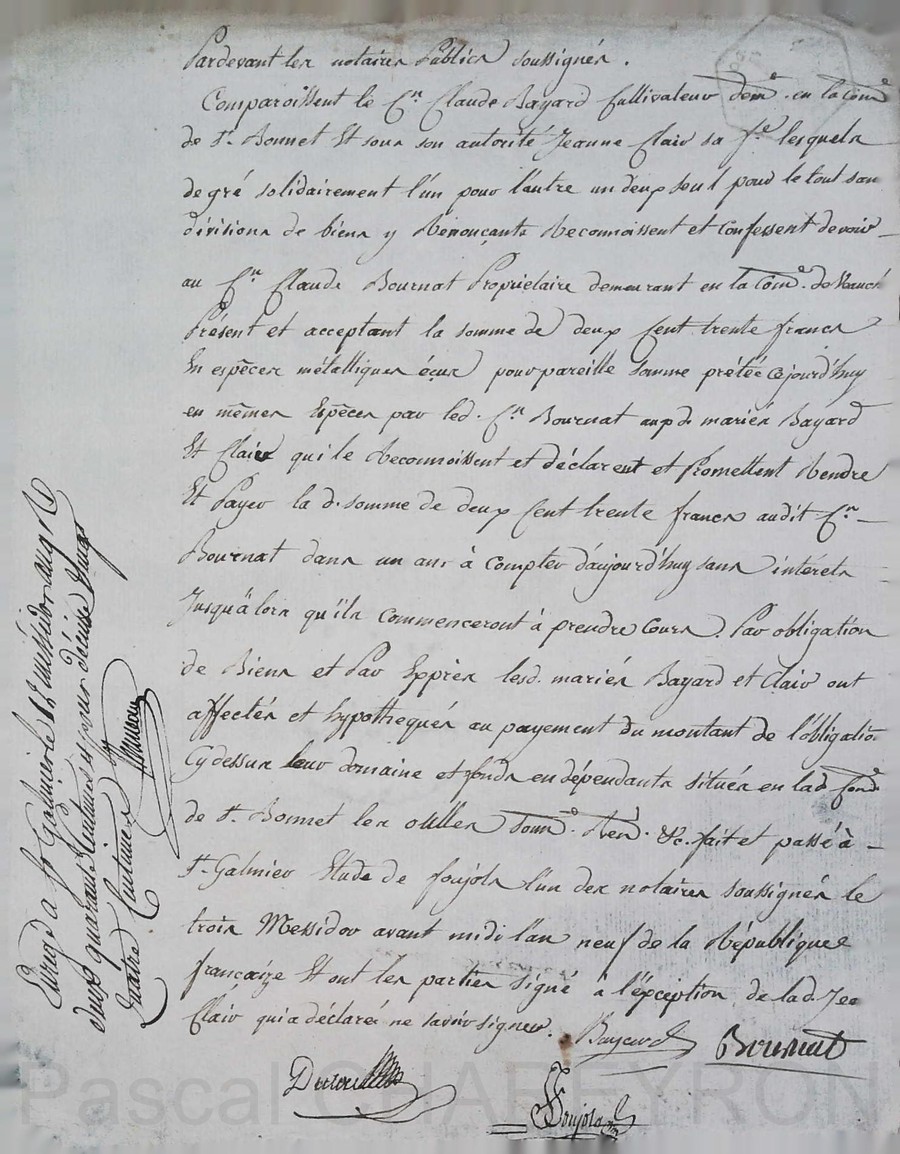 Pardevant les notaires Publics soussignés.
Comparoissent le Cn. Claude Bayard Cultivateur demt. en la Come
de St. Bonnet Et sous son autorité Jeanne Clair sa fe. lesquels
de gré solidairement l'un pour l'autre un deux seul pour le tout sans
divisions de biens y Renonçants Reconnoissent et Confessent devoir
au Cn. Claude Bournat Propriétaire demeurant en la Come. de
Présent et acceptant la somme de deux Cent trente francs
En espèces métalliques écus pour pareille Somme prêtée cejourd'huy
en mêmes Espèces par led. Cn. Bournat auxd. mariés Bayard
Et Clair qui le Reconnoissent et déclarent et Promettent Rendre
Et Payer la d. somme de deux Cent trente francs audit Cn.
Bournat dans un ans à Compter d'aujourd'huy sans intérets
Jusqu'à lors qu'ils commenceront à prendre Cours. Par obligation
de Biens et Par Exprès lesd. mariés Bayard et Clair ont
affectés et hypothequés au payement du montant de l'obligation
Cydessus leur domaine et fonds en dépendants situés en lad. Come.
de St. Bonnet les oulles &c. fait et passé à
St. Galmier Etude de foujols l'un des notaires soussignés le
trois Messidor avant midi l'an neuf de la République
françaize Et ont les parties signé à l'éxception de lad. Jee
Clair qui a déclaré ne savoir signer. Bayard Bournat
Foujols
Enrgé a St Galmier le messidor an 9 R
deux quarante Centimes
quatre Centimes
Pascal CHAFFYRON